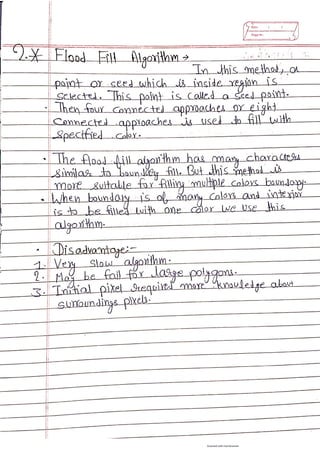 2.* Flood Fill Algorithm →
In this method, a
point or seed which is inside region is
selected. This point is called a seed point.
· Then four connected approaches or eight
connected approaches is used to fill with
specified color.
· The flood fill algorithm has many characters
similar to boundary fill. But this method is
more suitable for filling multiple colors boundary.
· When boundary is of many colors and interior
is to be filled with one color we use this
algorithm.
· Disadvantage:-
1. Very slow algorithm.
2. May be fail for large polygons.
3. Initial pixel required more knowledge about
surroundings pixels.